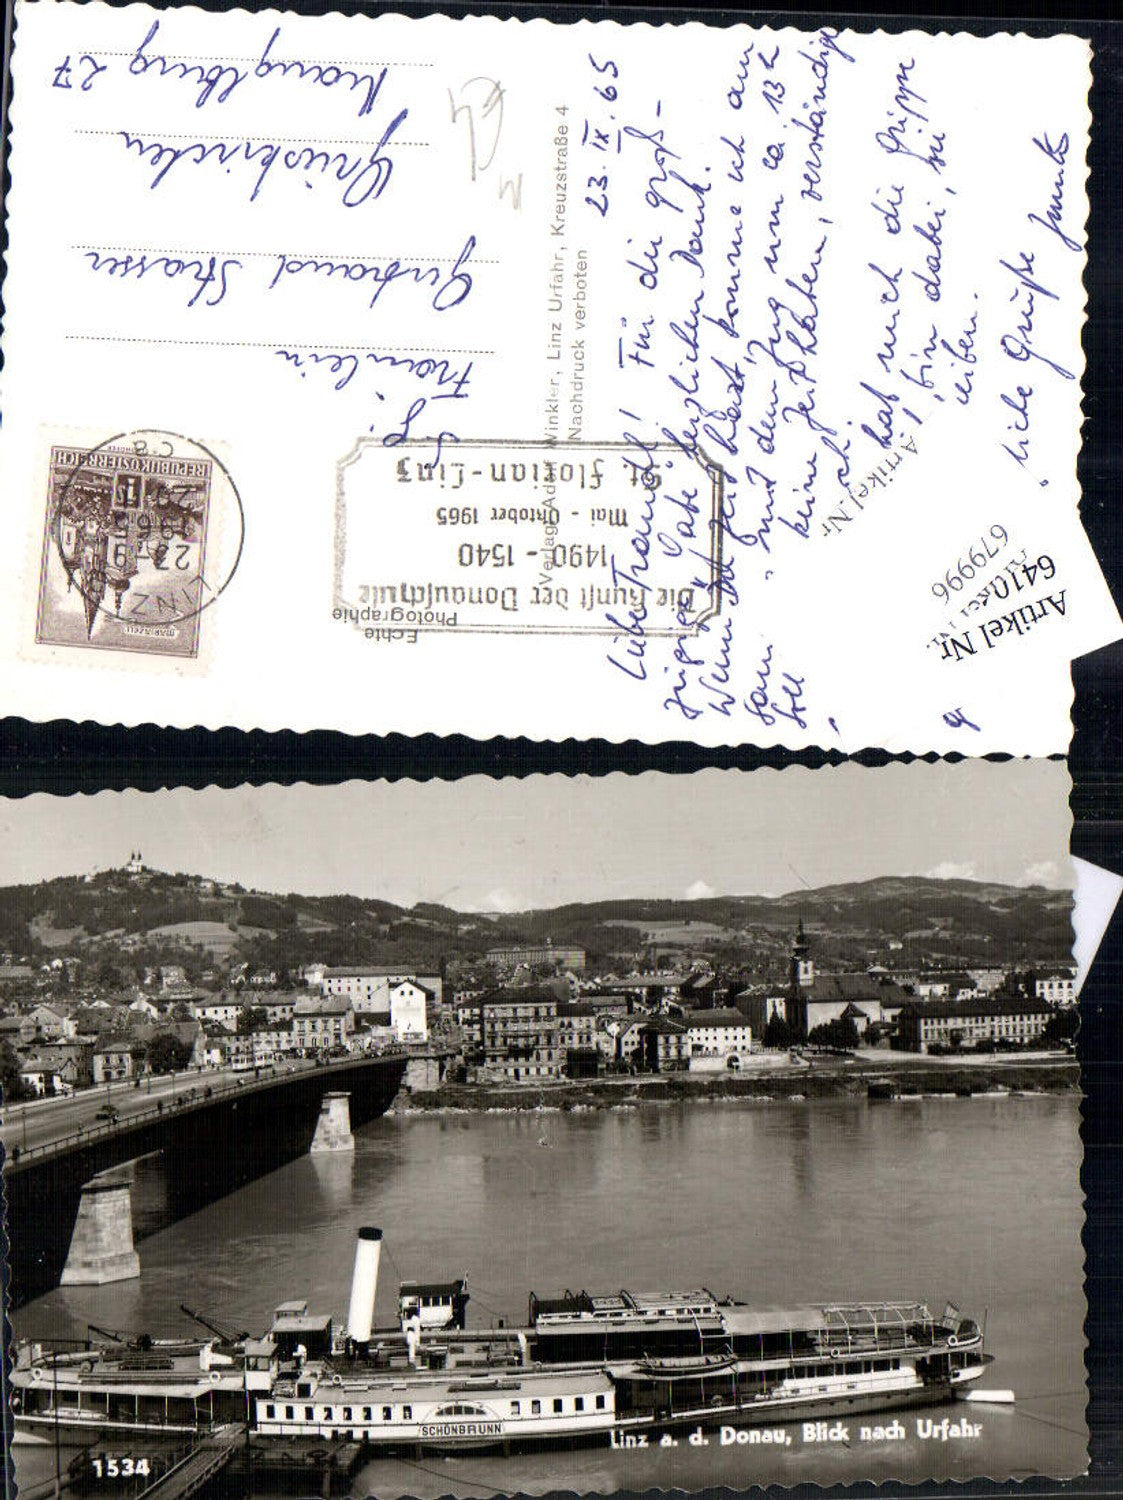 Liebe Traudl!
23. IX. 65
Für die groß-
zügige Gabe herzlichen Dank.
Wenn Du Zeit hast, komme ich am
Sam. mit dem Zug um ca. 13 h
Soll keine Zeit haben, verständige
hat mich die Grippe
bin dabei, sie
liebe Grüße
Frl.
Fräulein
Gertraud Strasser
Grieskirchen
Manglburg 27
Verlag Adolf Winkler, Linz Urfahr, Kreuzstraße 4
Nachdruck verboten
Echte
Photographie
Die Kunst der Donauschule
1490 - 1540
Mai - Oktober 1965
St. Florian - Linz
LINZ
27.-9.65
20
REPUBLIK ÖSTERREICH
MARIAZELL
Artikel Nr.
Artikel Nr.
679996
Artikel Nr.
SCHÖNBRUNN
Linz a. d. Donau, Blick nach Urfahr
1534